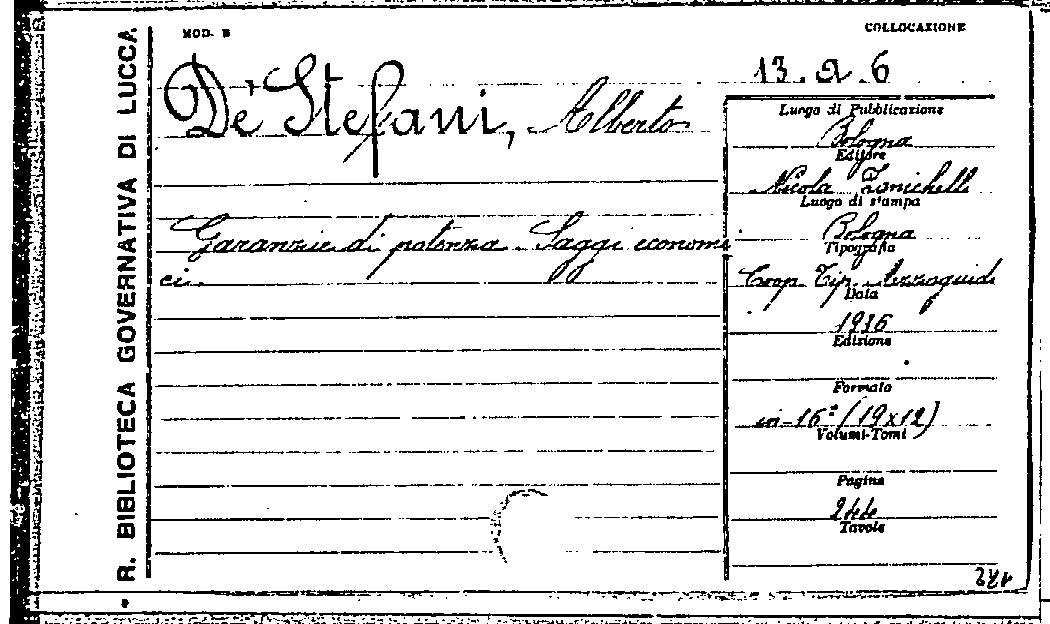 MOD. B
COLLOCAZIONE
R. BIBLIOTECA GOVERNATIVA DI LUCCA
13. a. 6
De' Stefani, Alberto
Luogo di Pubblicazione
Bologna
Editore
Nicola Zanichelli
Luogo di stampa
Garanzie di potenza - Saggi economi
ci.
Bologna
Tipografia
Coop. Tip. Azzoguidi
Data
1936
Edizione
Formato
in-16º (19x12)
Volumi-Tomi
Pagine
Tavole